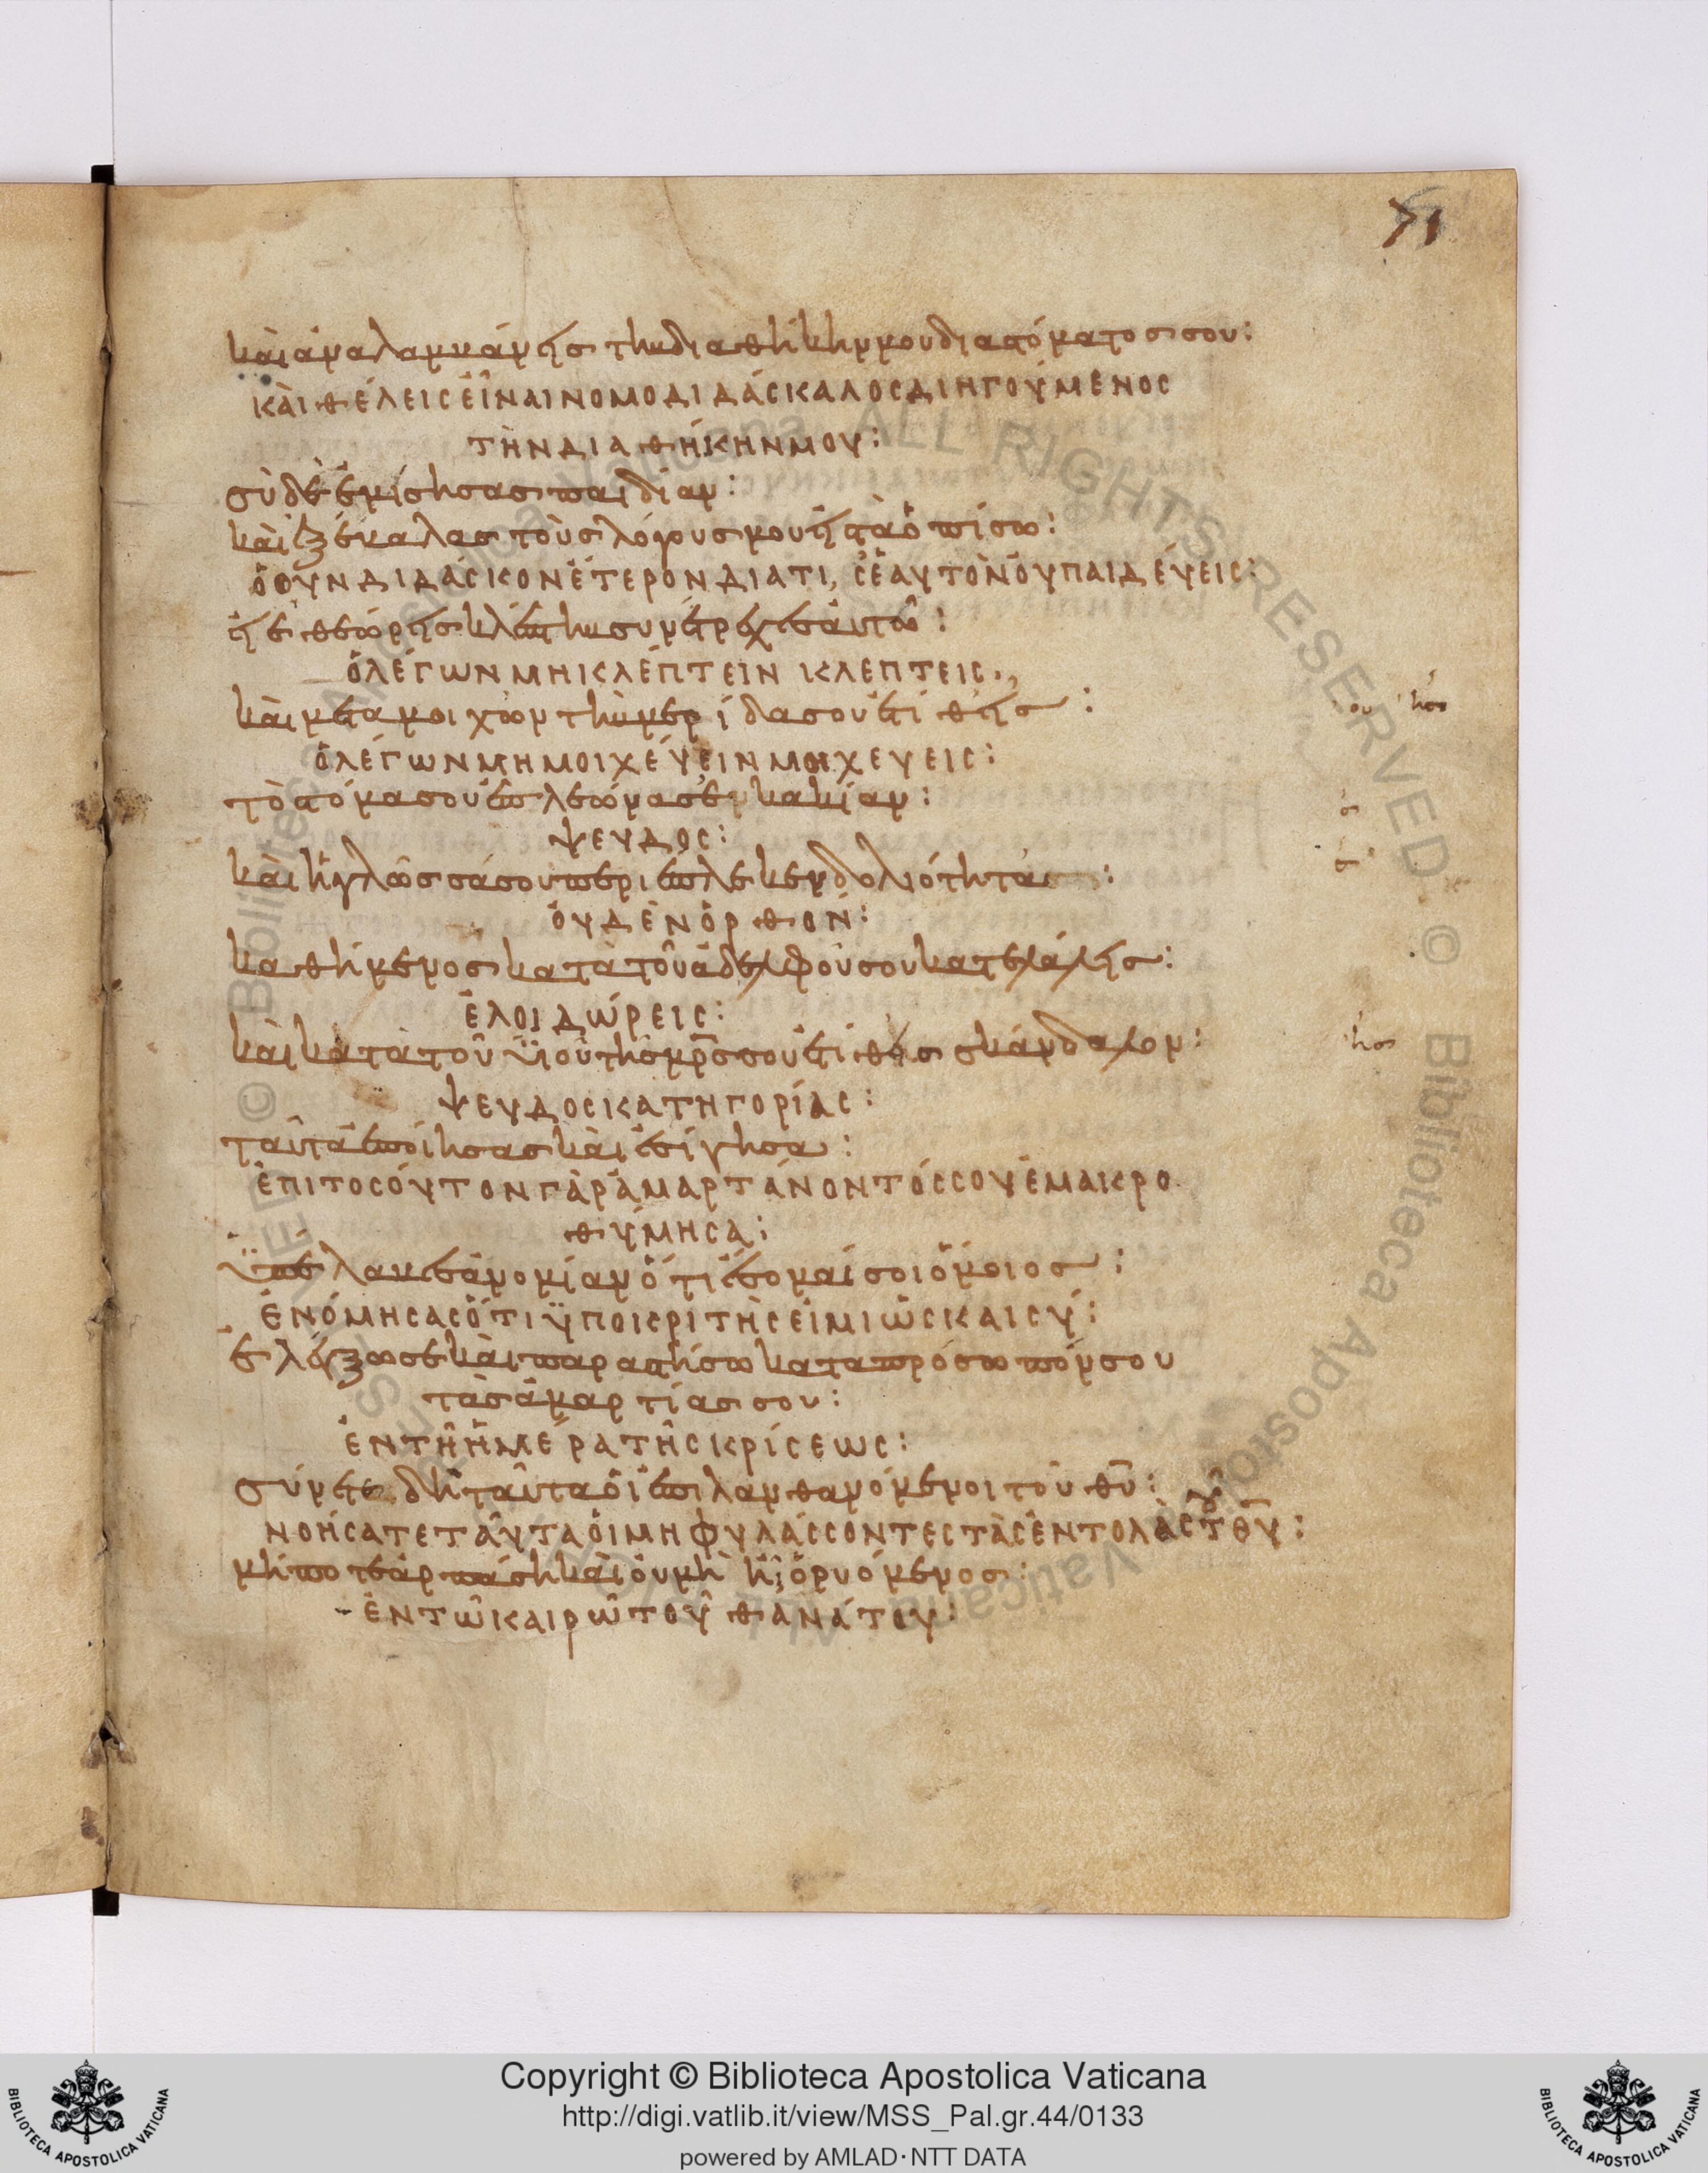 71
καὶ ἀναλαμβάνεις τὴν διαθήκην μου διαστόματοσ σου:
ΚΑῚ ΘΈΛΕΙC ΕἾΝΑΙ ΝΟΜΟΔΙΔΆCΚΑΛΟC ΔΙΗΓΟΎΜΕΝΟC
ΤῊΝ ΔΙΑΘΉΚΗΝ ΜΟΥ:
σὺ δὲ ἐμίσησας παιδίαν:
καὶ ἐξέβαλας τοὺς λόγους μου εἰς τὰ ὀπίσω:
Ὁ ΟΥΝ ΔΙΔΆCΚΟΝ ἝΤΕΡΟΝ ΔΙΑΤΙ, CἘΑΥΤῸΝ ΟΥ ΠΑΙΔΈΥΕΙC:
εἰ ἐθεώρεις κλέπτην συνέτρεχες ἀυτῶ:
Ὁ ΛΈΓΩΝ ΜΗ ΚΛΈΠΤΕΙΝ ΚΛΕΠΤΕΙC.,
καὶ μετα μοιχῶν τὴν μερίδα σου ἐτίθεις:
Ὁ ΛΈΓΩΝ ΜΗ ΜΟΙΧΈΥΕΙΝ ΜΟΙΧΕΥΕΙC:
τὸ στόμα σου ἐπλεώνασεν κακίαν:
ΨΕΥΔΟC:
καὶ ἡ γλῶσσά σου περιέπλεκεν δολιότητας:
ΟΥΔῈΝ ὈΡΘΟΝ:
καθήμενος κατὰ τοῦ ἀδελφοῦ σου κατελάλεις:
ἘΛΟΙΔΏΡΕΙC:
καὶ κατὰ τοῦ ϋἱοῦ τῆς μρ̅ς σου ἐτίθεις σκάνδαλον:
ΨΕΥΔΟC ΚΑΤΗΓΟΡΊΑC:
ταῦτα ἐποίησας καὶ ἐσίγησα:
ἘΠΙ ΤΟCΌΥΤΟΝ ΓᾺΡ ἉΜΑΡΤΆΝΟΝΤΌC CΟΥ ἘΜΑΚΡΟ
ΘΎΜΗCΑ:
ϋπέλαβες ἀνομίαν ὅτι ἔσομαί σοι ὅμοιος:
ἘΝΌΜΗCΑC ὍΤΙ ΫΠΟΚΡΙΤῊC ΕἸΜΙ ὩC ΚΑΙ CΎ:
ἐλέγξω σε καὶ παραστήσω κατα πρόσωπόν σου
τὰς ἁμαρτίας σου:
ἘΝ ΤΗ͂ ἩΜΈΡΑ ΤΗ͂C ΚΡΊCΕΩC:
σύνετε δὴ ταῦτα ὁἱ ἐπιλανθανόμενοι τοῦ θυ̅:
ΝΟΉCΑΤΕ ΤΑΥ͂ΤΑ ὉΙ ΜΗ ΦΥΛΆCCΟΝΤΕC ΤᾺC ἘΝΤΟΛᾺC ΤΟΥ͂ ΘΥ̅:
μήποτε ἁρπάση καὶ ὀυ μὴ ἦ ὁ ῥυόμενος:
ἘΝ ΤΩ͂ ΚΑΙΡΩ͂ ΤΟΥ͂ ΘΑΝΆΤΟΥ:
Copyright © Biblioteca Apostolica Vaticana
http://digi.vatlib.it/view/MSS_Pal.gr.44/0133
powered by AMLAD·NTT DATA
BIBLIOTECA APOSTOLICA VATICANA
BIBLIOTECA APOSTOLICA VATICANA